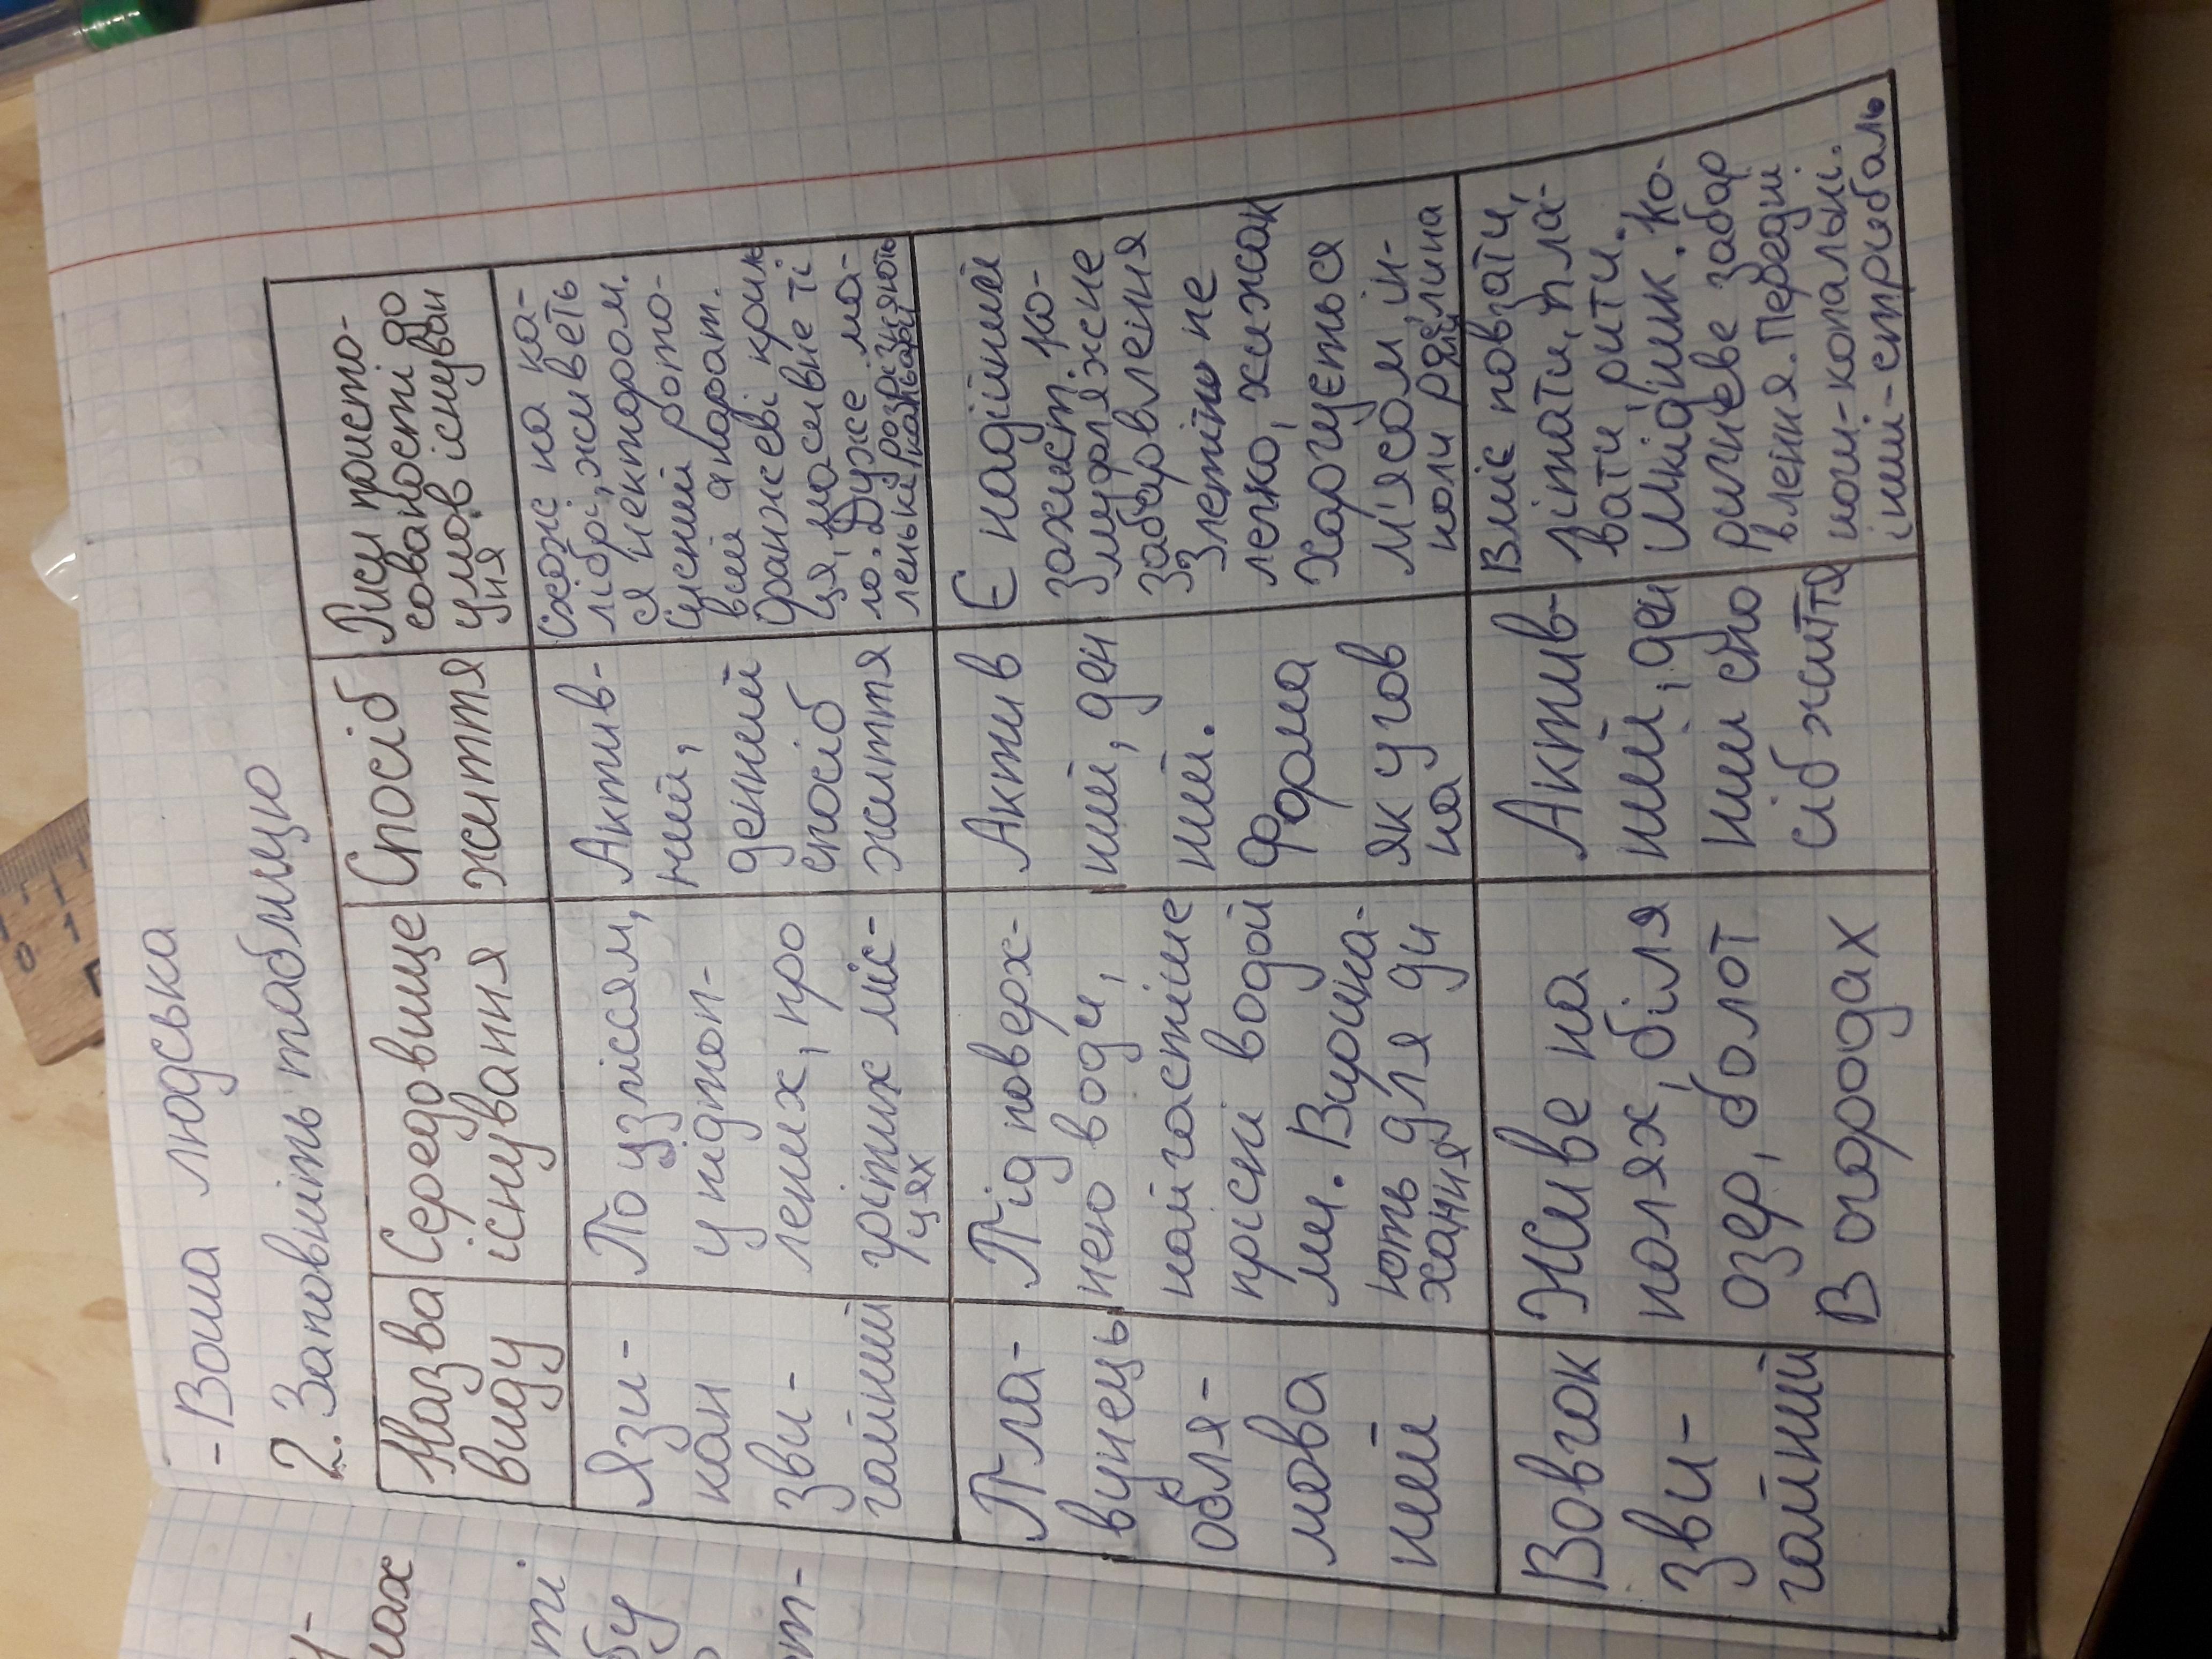 - Воша людська
2. Заповніть таблицю
Назва
виду
Середовище
існування
Спосіб
життя
Риси присто-
сованості до
умов існуван
ня
Язи-
кан
зви-
чайний
По узліссям,
у підтоп-
лених, про
грітих міс-
цях
Актив-
ний,
денний
спосіб
життя
Схоже на ка-
лібрі, живеть
ся нектаром.
Сисний рото-
вий апарат.
Оранжеві крил
ця, масивне ті
ло. Дуже ма-
ленькі, розрізняють
Пла-
вунець
обля-
мова
ний
Під поверх-
нею води,
найчастіше
прісні водой
ми. Виринa-
ють для ди
хання
Актив
ний, ден
ний.
Форма
як у чов
на
Є надійний
захист. Ка-
муфляжне
забарвлення
Злетіти не
легко, хижак
Харчується
м'ясом, ін-
коли рослина
ми
Вовчок
зви-
чайний
Живе на
полях, біля
озер, болот
В огородах
Актив-
ний, ден
ний спо
сіб життя
Вміє повзати,
літати, пла-
вати, рити.
Шкідник. Ко-
ричневе забар
влення. Передні
ноги-копальні.
інші-стрибаль